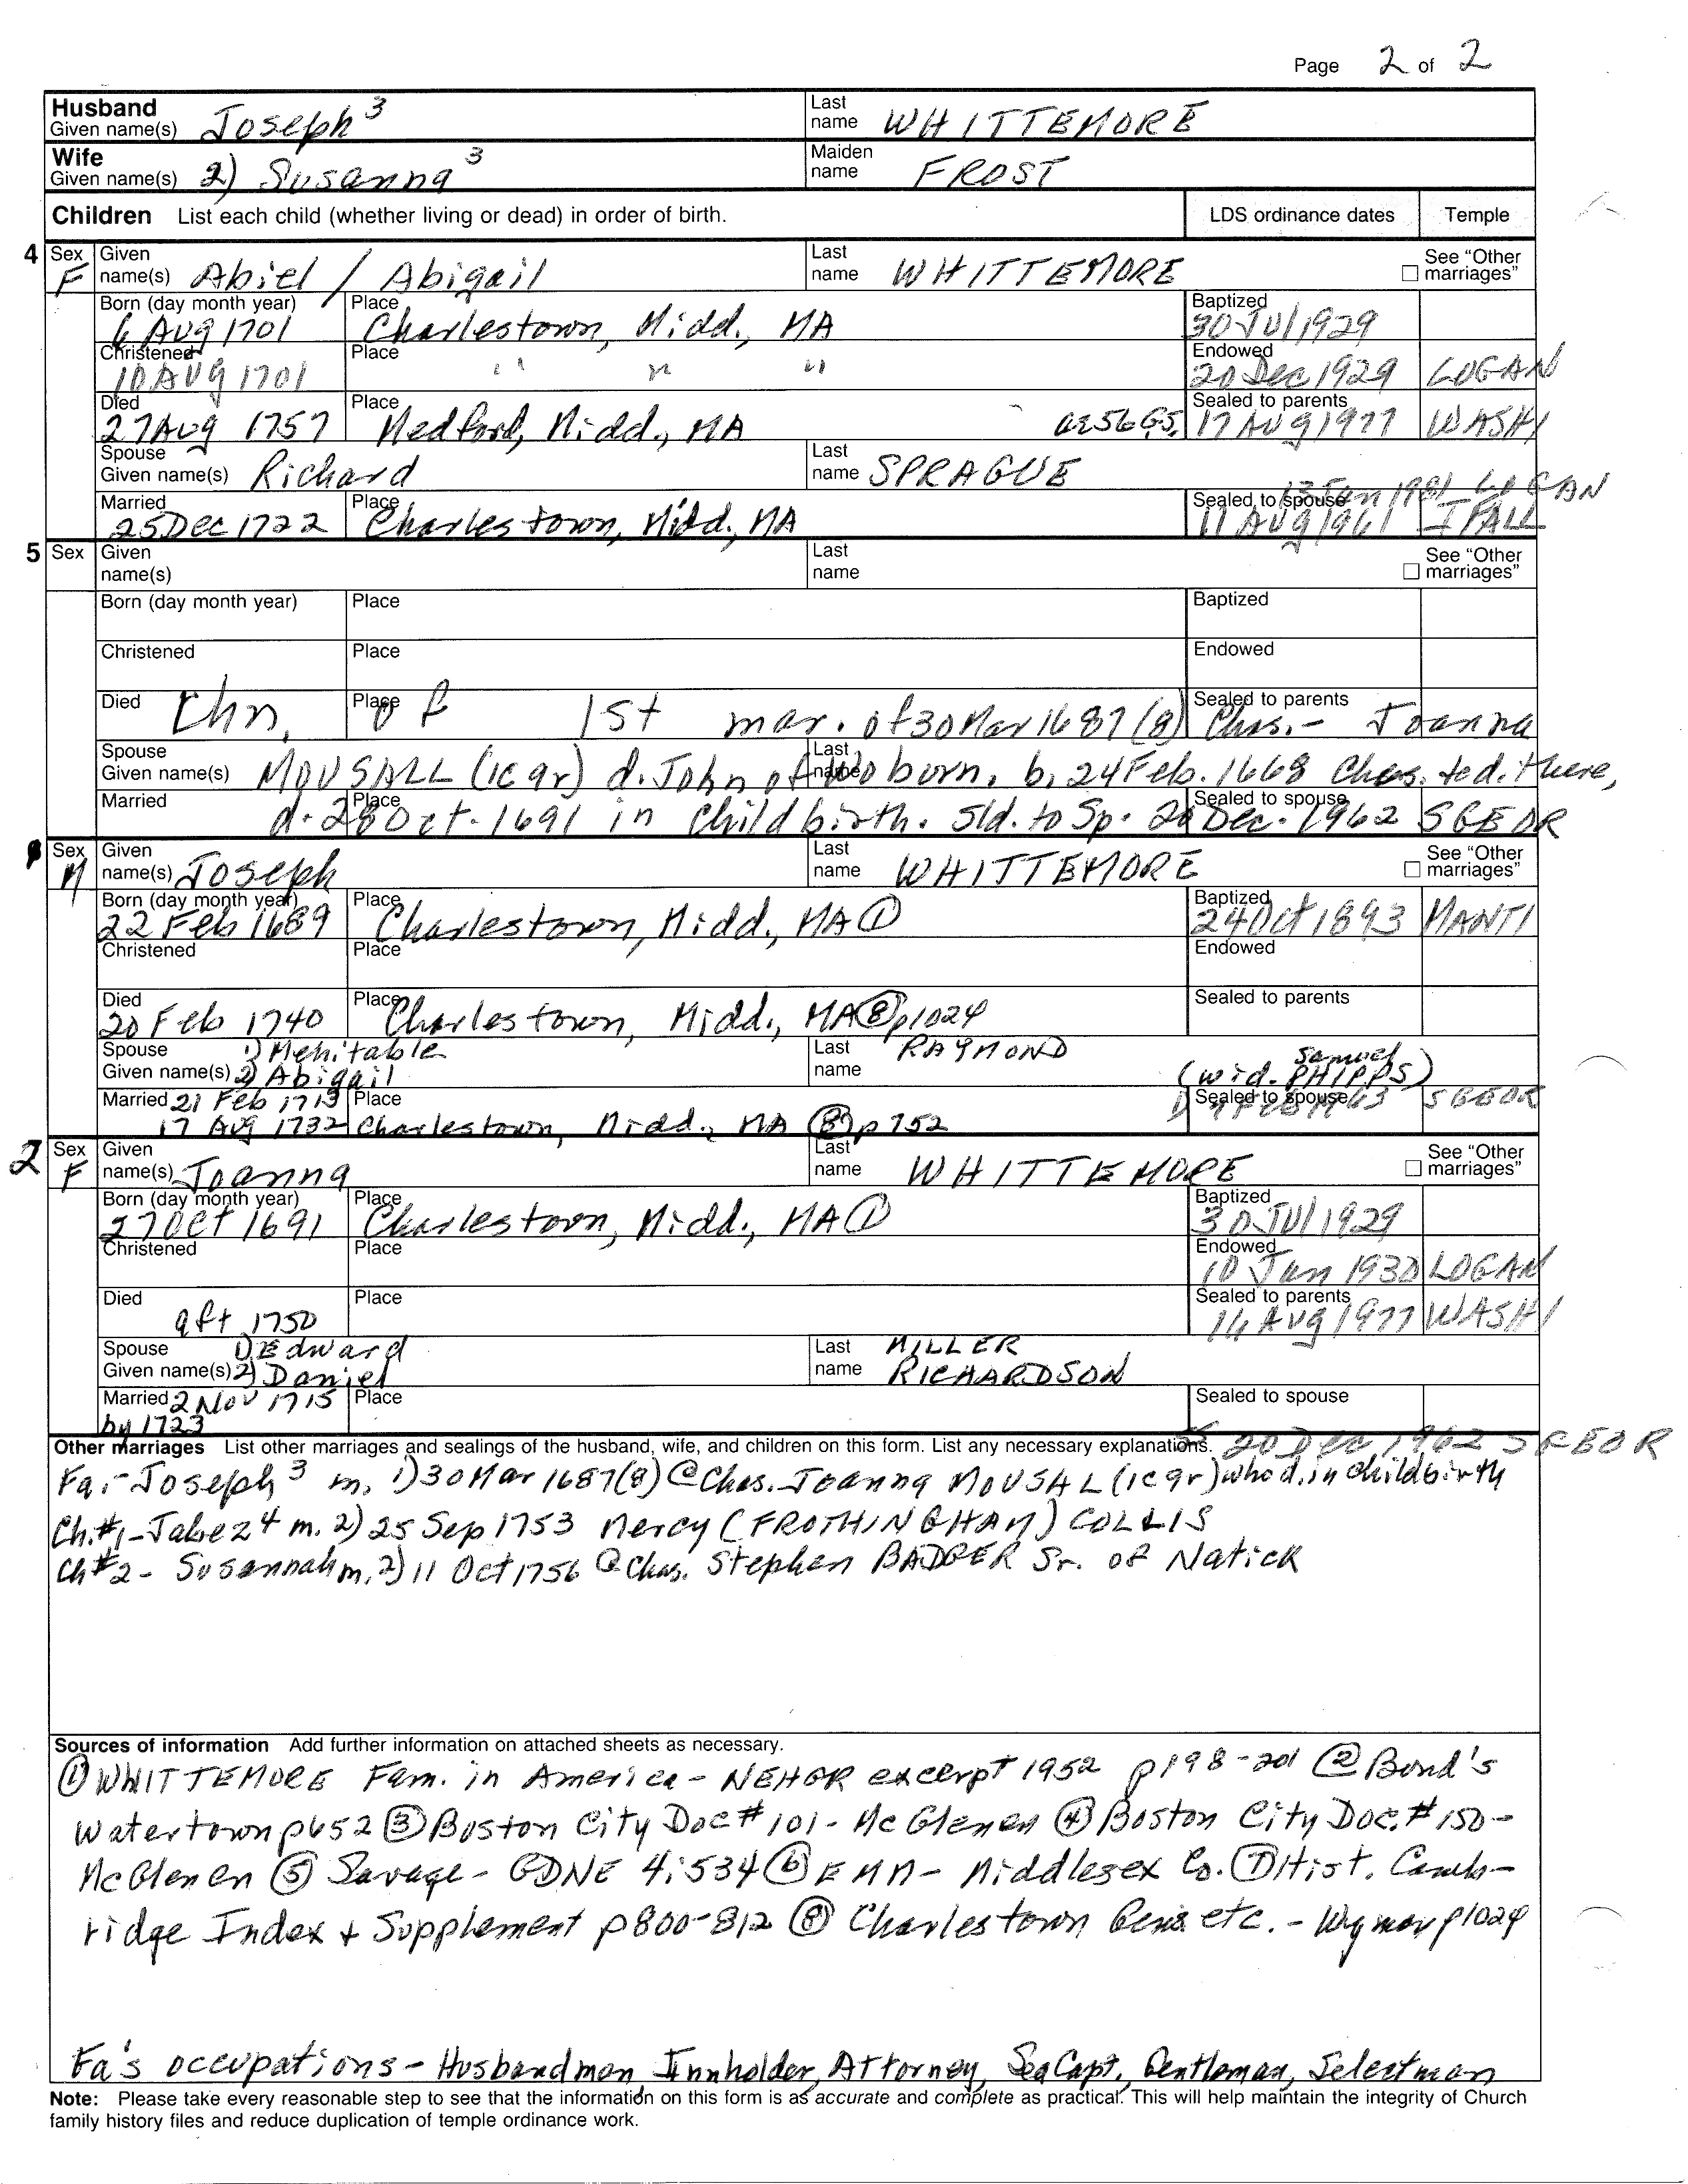 Page 2 of 2
Husband Given name(s) Joseph 3 Last name WHITTEMORE
Wife Given name(s) 2) Susanna 3 Maiden name FROST
Children List each child (whether living or dead) in order of birth. LDS ordinance dates Temple
4 Sex F Given name(s) Abiel / Abigail Last name WHITTEMORE See "Other marriages"
Born (day month year) 6 AUG 1701 Place Charlestown, Midd., MA Baptized 30 JUl 1929
Christened 10 AUG 1701 Place " " " Endowed 20 Dec 1929 LOGAN
Died 27 AUG 1757 Place Medford, Midd., MA ae 56 GS. Sealed to parents 17 AUG 1977 WASH
Spouse Given name(s) Richard Last name SPRAGUE
13 Jan 1981 LOGAN
Married 25 Dec 1722 Place Charlestown, Midd., MA Sealed to spouse 11 AUG 1961 IFALL
5 Sex Given name(s) Last name See "Other marriages"
Born (day month year) Place Baptized
Christened Place Endowed
Died Place Sealed to parents
Chn. of 1st mar. of 30 Mar 1687(8) Chas. - Joanna
Spouse Given name(s) Last name
MOUSALL (ICgr) d. John of Woburn. b. 24 Feb. 1668 Chas. ted. there,
Married Place Sealed to spouse
d. 28 Oct. 1691 in childbirth. Sld. to Sp. 20 Dec. 1962 SGEOR
Sex M Given name(s) Joseph Last name WHITTEMORE See "Other marriages"
Born (day month year) 22 Feb 1689 Place Charlestown, Midd., MA ① Baptized 24 Oct 1893 MANTI
Christened Place Endowed
Died 20 Feb 1740 Place Charlestown, Midd., MA ⑧ p1024 Sealed to parents
Spouse Given name(s) 1) Mehitable Last name RAYMOND
2) Abigail (wid. Samuel PHIPPS)
Married 21 Feb 1713 Place Sealed to spouse 1) 9 FEB 1963 SGEOR
17 AUG 1732 Charlestown, Midd., MA ⑧ p 752
2 Sex F Given name(s) Joanna Last name WHITTEMORE See "Other marriages"
Born (day month year) 27 Oct 1691 Place Charlestown, Midd., MA ① Baptized 30 JUl 1929
Christened Place Endowed 10 Jan 1930 LOGAN
Died aft 1750 Place Sealed to parents 16 Aug 1977 WASH
Spouse Given name(s) 1) Edward Last name MILLER
2) Daniel RICHARDSON
Married 2 Nov 1715 Place Sealed to spouse
by 1723
Other marriages List other marriages and sealings of the husband, wife, and children on this form. List any necessary explanations. 20 Dec 1962 SGEOR
Fa. - Joseph 3 m. 1) 30 Mar 1687(8) @ Chas. Joanna MOUSAL (ICgr) who d. in childbirth
Ch. #1 - Jabez 4 m. 2) 25 Sep 1753 Mercy (FROTHINGHAM) COLLIS
Ch #2 - Susannah m. 2) 11 Oct 1756 @ Chas. Stephen BADGER Sr. of Natick
Sources of information Add further information on attached sheets as necessary.
① WHITTEMORE Fam. in America - NEHGR excerpt 1952 p198-201 ② Bond's
Watertown p652 ③ Boston City Doc # 101 - McGlenen ④ Boston City Doc. # 150 -
McGlenen ⑤ Savage - GDNE 4:534 ⑥ EMM - Middlesex Co. ⑦ Hist. Camb-
ridge Index + Supplement p800-812 ⑧ Charlestown Gens etc. - Wyman p1024
Fa's occupations - Husbandman Innholder, Attorney, Sea Capt., Gentleman, Selectman
Note: Please take every reasonable step to see that the information on this form is as accurate and complete as practical. This will help maintain the integrity of Church
family history files and reduce duplication of temple ordinance work.